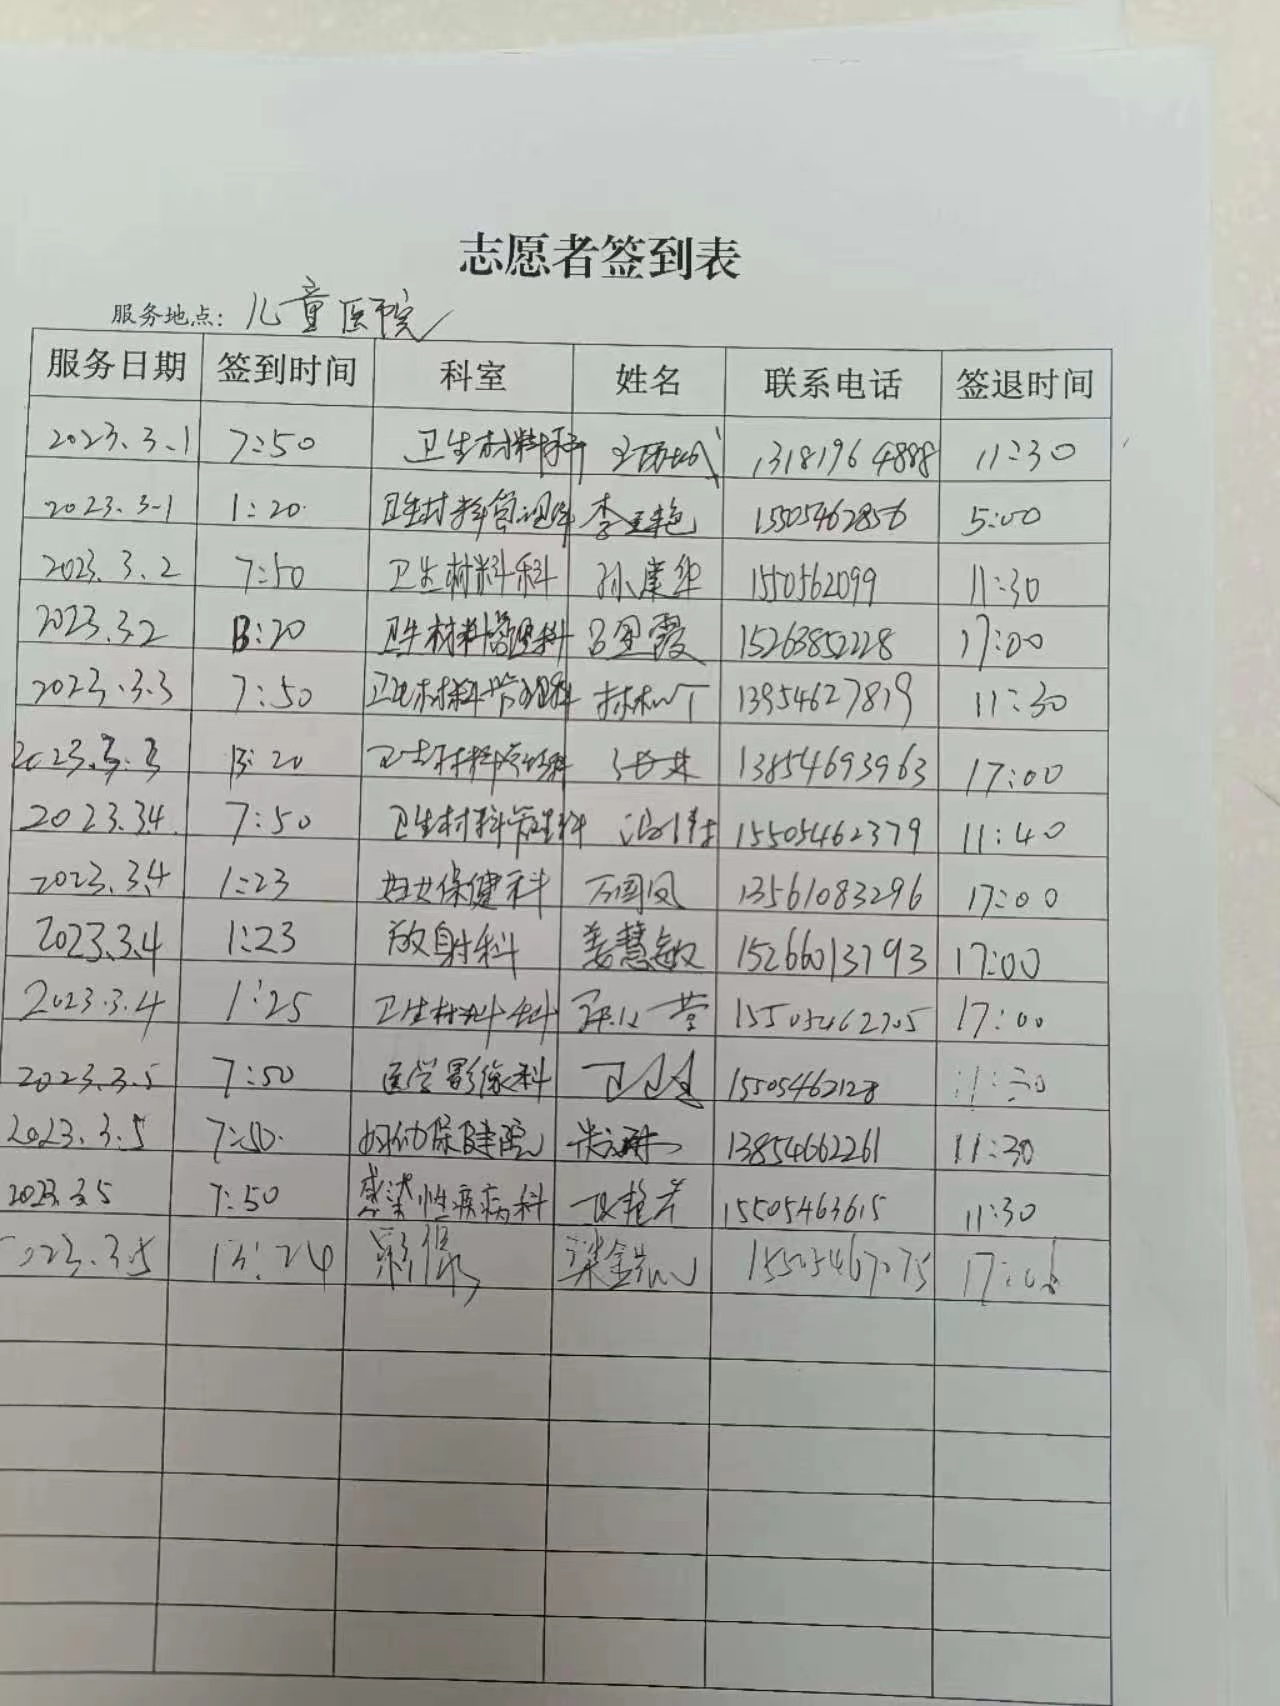 志愿者签到表
服务地点：儿童医院
服务日期 签到时间 科室 姓名 联系电话 签退时间
2023.3.1 7:50 卫生材料科 13181964888 11:30
2023.3.1 1:20 卫生材料管理科 李玉艳 15505462856 5:00
2023.3.2 7:50 卫生材料科 孙建华 1550562099 11:30
2023.3.2 13:20 卫生材料管理科 吕卫霞 15263852228 17:00
2023.3.3 7:50 卫生材料管理科 13954627819 11:30
2023.3.3 13:20 卫生材料管理科 13854693963 17:00
2023.3.4 7:50 卫生材料管理科 15505462379 11:40
2023.3.4 1:23 妇女保健科 万国凤 13561083296 17:00
2023.3.4 1:23 放射科 姜慧敏 15266013793 17:00
2023.3.4 1:25 卫生材料科 15505462705 17:00
2023.3.5 7:50 医学影像科 15505462128 11:30
2023.3.5 7:50 妇幼保健院 13854662261 11:30
2023.3.5 7:50 感染性疾病科 15505463615 11:30
2023.3.5 13:24 影像 15505467075